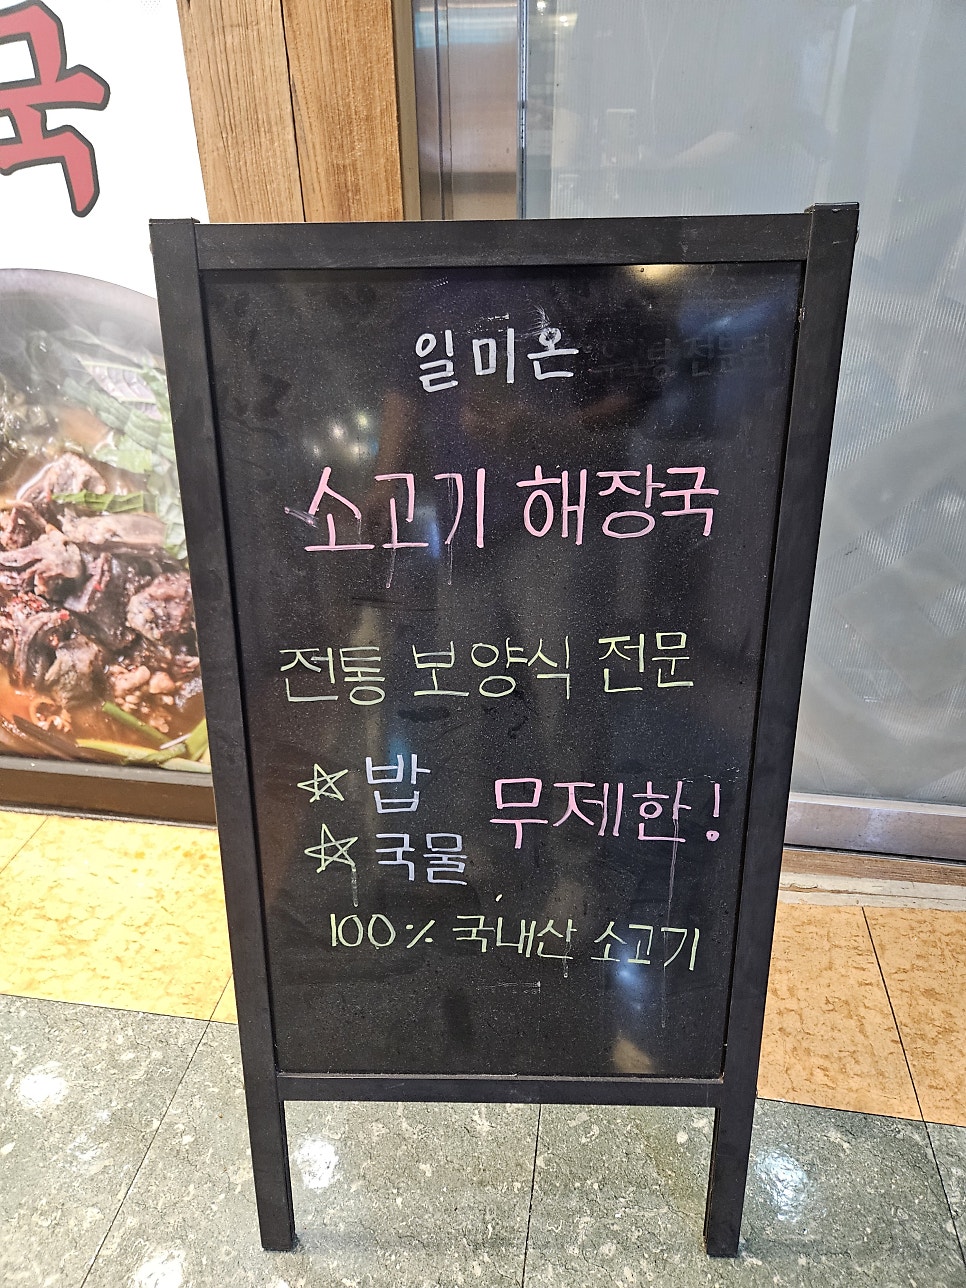 국
일미온
소고기 해장국
전통 보양식 전문
☆ 밥 무제한!
☆ 국물
100% 국내산 소고기